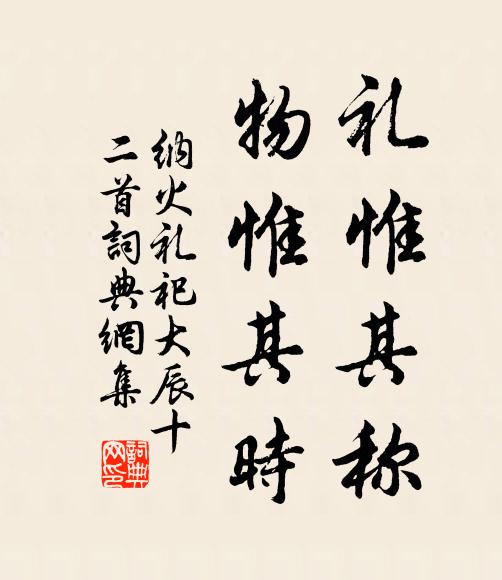 礼惟其称
物惟其時
納火礼祀大辰十
二首詞典網集
詞典
网印